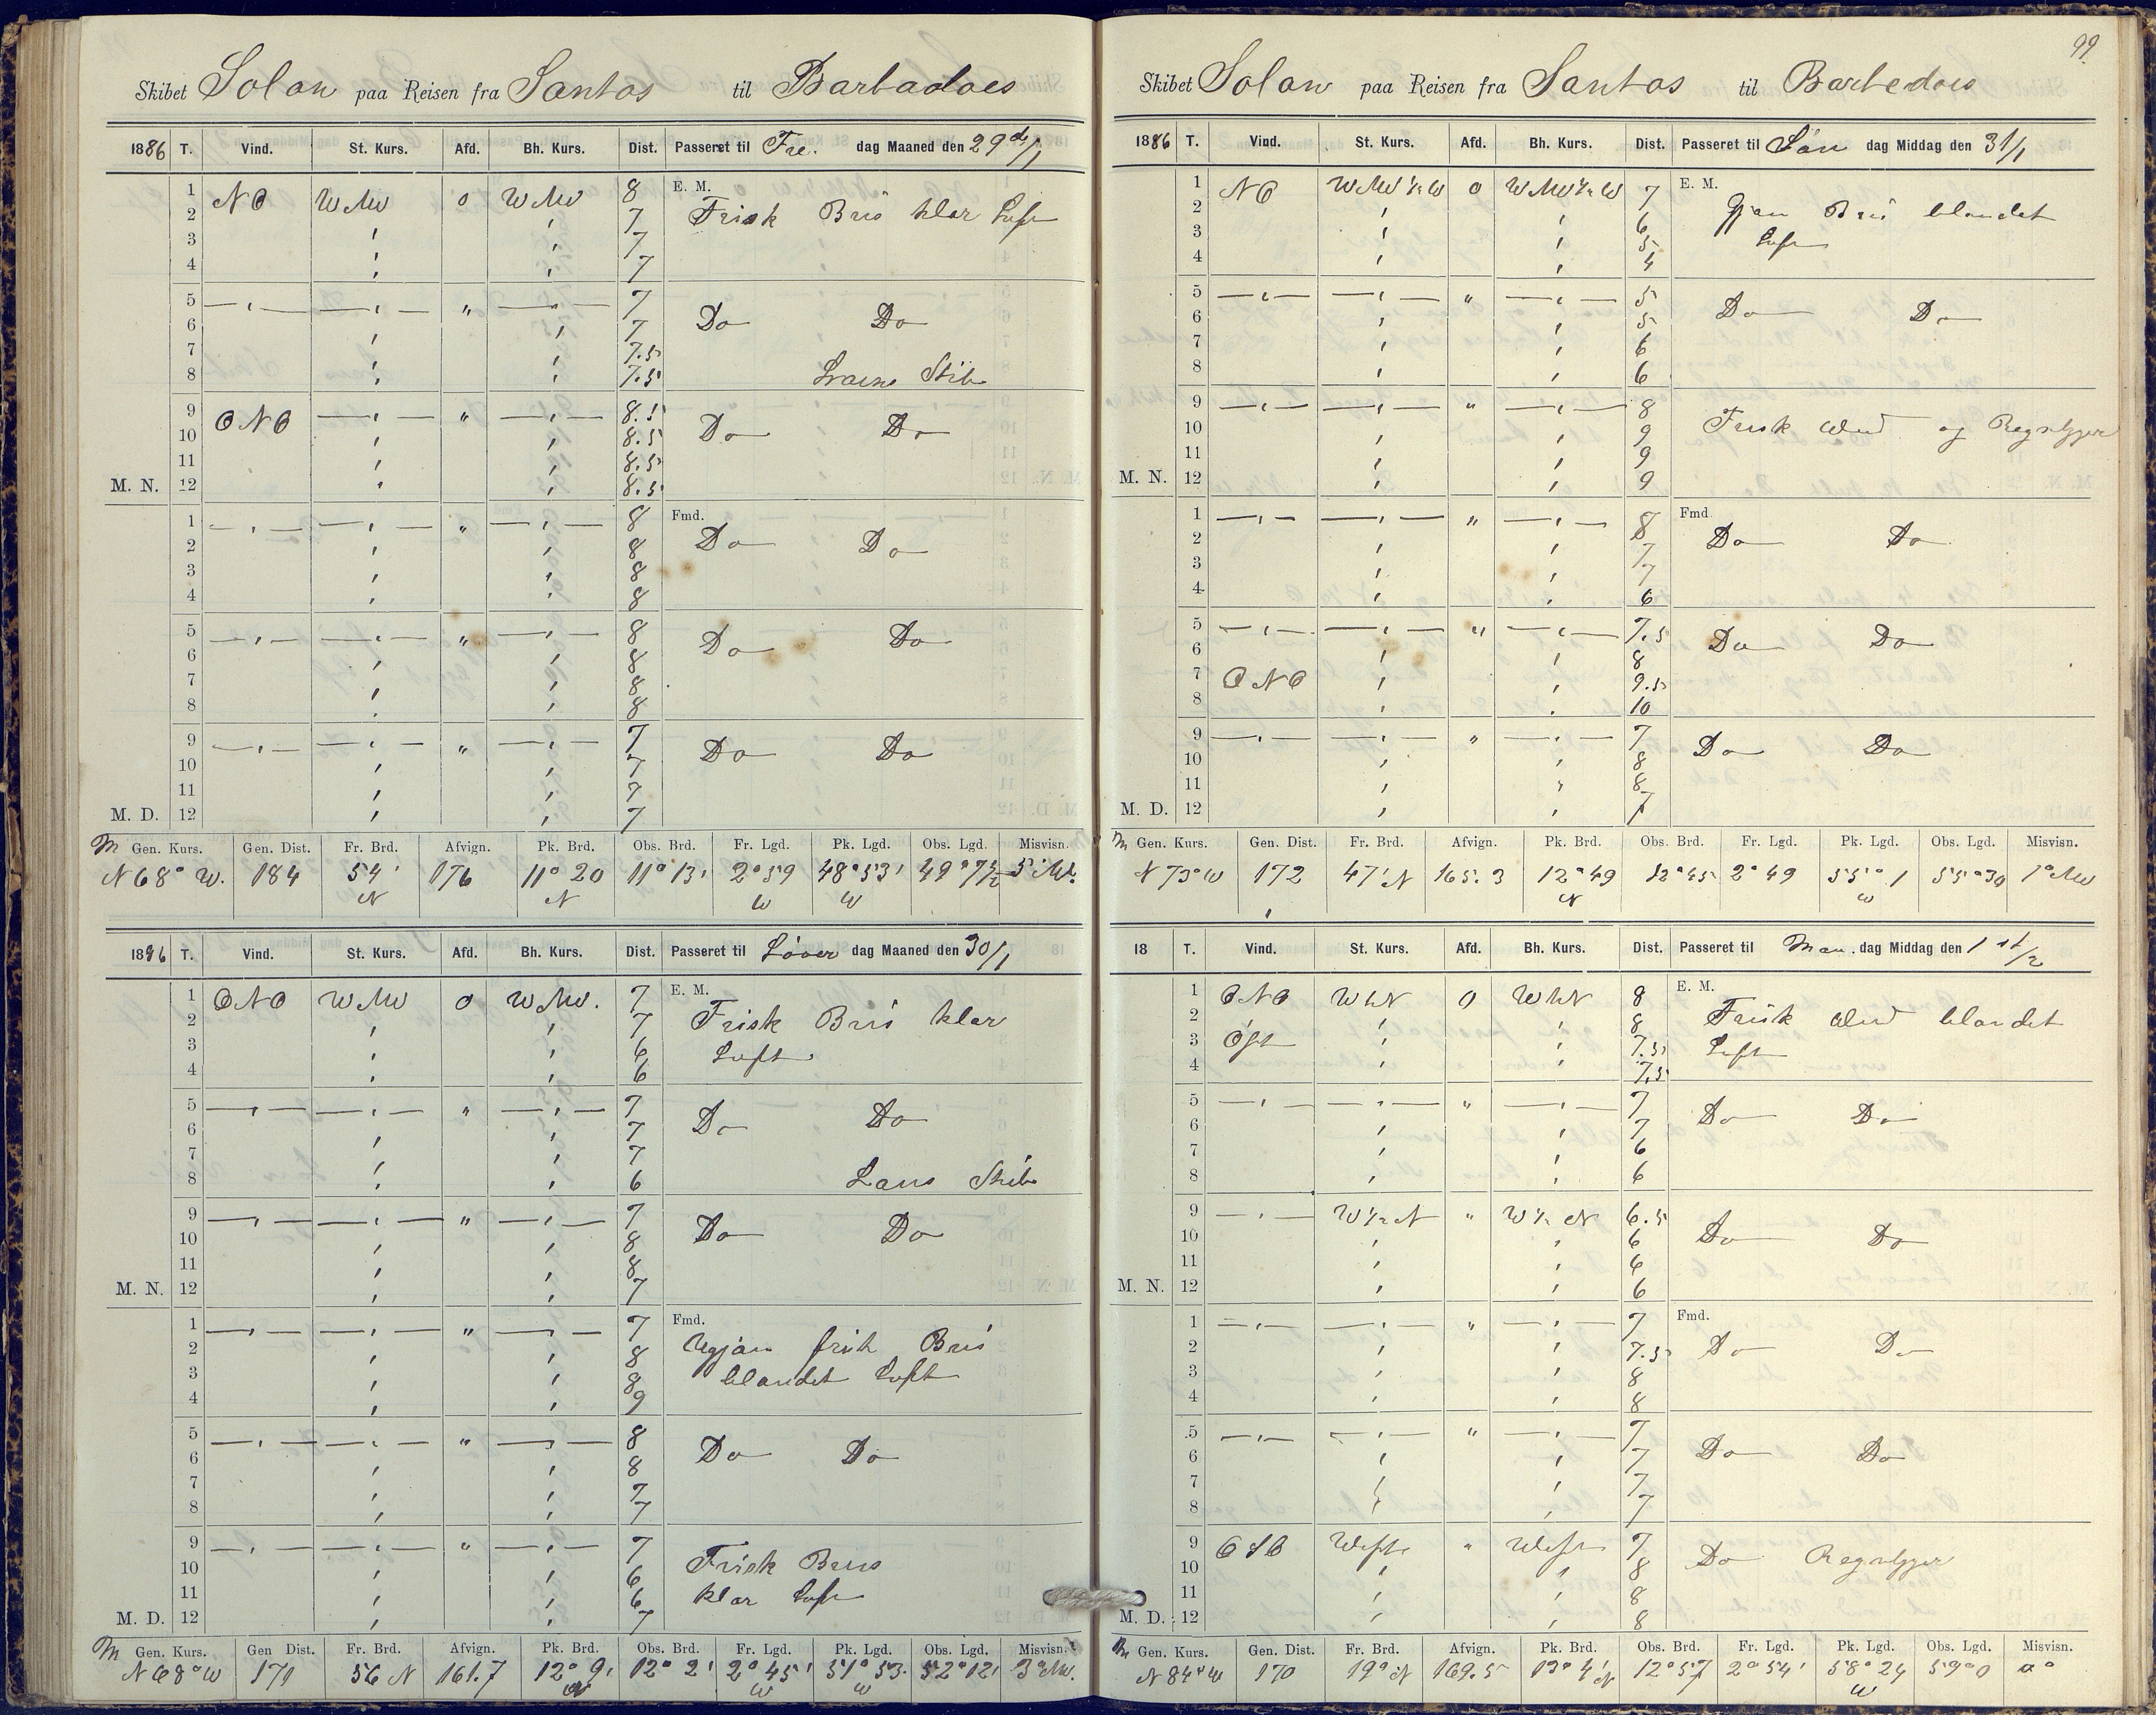 Skibet Solon paa Reisen fra Santos til Barbadoes
1886 T. Vind. St. Kurs. Afd. Bh. Kurs. Dist. Passeret til Fre. dag Maaned den 29de/1
1 NO WNW 0 WNW 8 E. M.
2 ' ' 7 Frisk Bris klar Luft
3 ' ' 7
4 ' ' 7
5 —"— —"— " —"— 7
6 ' ' 7 Do Do
7 ' ' 7.5
8 ' ' 7.5 Lræns Skib
9 ONO —"— " —"— 8.5
10 ' ' 8.5 Do Do
11 ' ' 8.5
M. N. 12 ' ' 8.5
1 —"— —"— " —"— 8 Fmd.
2 ' ' 8 Do Do
3 ' ' 8
4 ' ' 8
5 —"— —"— " —"— 8
6 ' ' 8 Do Do
7 ' ' 8
8 ' ' 8
9 —"— —"— " —"— 7
10 ' ' 7 Do Do
11 ' ' 7
M. D. 12 ' ' 7
M Gen. Kurs. Gen. Dist. Fr. Brd. Afvign. Pk. Brd. Obs. Brd. Fr. Lgd. Pk. Lgd. Obs. Lgd. Misvisn.
N 68° W. 184 54' N 176 11° 20 N 11° 13' 2° 59 W 48° 53' W 49° 7½
1886 T. Vind. St. Kurs. Afd. Bh. Kurs. Dist. Passeret til Løver dag Maaned den 30/1
1 ONO WNW 0 WNW. 7 E. M.
2 ' ' 7 Frisk Bris klar
3 ' ' 6 Luft
4 ' ' 6
5 —"— —"— " —"— 7
6 ' ' 7 Do Do
7 ' ' 7
8 ' ' 6 Læns Skib
9 —"— —"— " —"— 7
10 ' ' 8 Do Do
11 ' ' 8
M. N. 12 ' ' 7
1 —"— —"— " —"— 7 Fmd.
2 ' ' 8 Ugjæn frisk Bris
3 ' ' 8 blandet Luft
4 ' ' 9
5 —"— —"— " —"— 8
6 ' ' 8 Do Do
7 ' ' 7
8 ' ' 7
9 —"— —"— " —"— 7
10 ' ' 6 Frisk Bris
11 ' ' 6 klar Luft
M. D. 12 ' ' 7
M Gen. Kurs. Gen Dist. Fr. Brd. Afvign. Pk. Brd. Obs. Brd. Fr. Lgd. Pk. Lgd. Obs. Lgd. Misvisn.
N 68° W 171 56 N 161.7 12° 9' N 12° 2' 2° 45' W 51° 53. W 52° 12' 3° NW.
99
Skibet Solon paa Reisen fra Santos til Barbedoes
1886 T. Vind. St. Kurs. Afd. Bh. Kurs. Dist. Passeret til Søn dag Middag den 31/1
1 NO WNW½W 0 WNW½W 7 E. M.
2 ' ' 6 Gjæn Bris blandet
3 ' ' 5 Luft
4 ' ' 4
5 —"— —"— " —"— 5
6 ' ' 5 Do Do
7 ' ' 6
8 ' ' 6
9 —"— —"— " —"— 8
10 ' ' 9 Frisk Vind og Regnbyger
11 ' ' 9
M. N. 12 ' ' 9
1 —"— —"— " —"— 8 Fmd
2 ' ' 7 Do Do
3 ' ' 7
4 ' ' 6
5 —"— —"— " —"— 7.5
6 ' ' 8 Do Do
7 ONO ' ' 9.5
8 ' ' 10
9 —"— —"— " —"— 7
10 ' ' 8 Do Do
11 ' ' 8
M. D. 12 ' ' 7
M Gen. Kurs. Gen. Dist. Fr. Brd. Afvign. Pk. Brd. Obs. Brd. Fr. Lgd. Pk. Lgd. Obs. Lgd. Misvisn.
N 73° W 172 47' N 165.3 12° 49 N 12° 45 2° 49 55° 1 W 55° 30 1° NW
18 T. Vind. St. Kurs. Afd. Bh. Kurs. Dist. Passeret til Man. dag Middag den 1st/2
1 ONO WbN 0 WbN 8 E. M.
2 ' ' 8 Frisk Vind blandet
3 Øst ' ' 7.5 Luft
4 ' ' 7.5
5 —"— —"— " —"— 7
6 ' ' 7 Do Do
7 ' ' 6
8 ' ' 6
9 —"— W½N " W½N 6.5
10 ' ' 6 Do Do
11 ' ' 6
M. N. 12 ' ' 6
1 —"— —"— " —"— 7 Fmd.
2 ' ' 7.5 Do Do
3 ' ' 8
4 ' ' 8
5 —"— —"— " —"— 7
6 ' ' 7 Do Do
7 ' ' 7
8 ' ' 7
9 OSO West " West 7
10 ' ' 8 Do Regnbyger
11 ' ' 8
M. D. 12 ' ' 8
M Gen. Kurs. Gen. Dist. Fr. Brd. Afvign. Pk. Brd. Obs. Brd. Fr. Lgd. Pk. Lgd. Obs. Lgd. Misvisn.
N 84° W 170 19° N 169.5 13° 4' N 12° 57 2° 54' 58° 24 W 59° 0